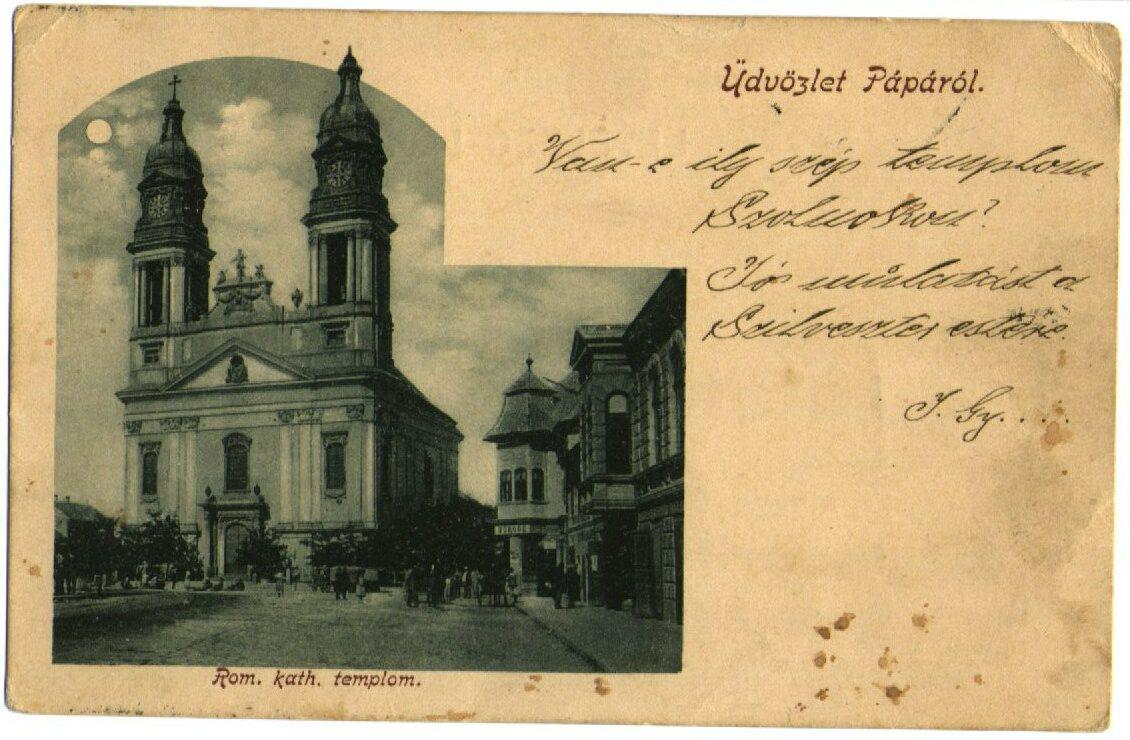 Üdvözlet Pápáról.
Van-e ily szép templom
Szolnokon?
Jó mulatást a
Szilveszter estére.
J. Gy....
Rom. kath. templom.